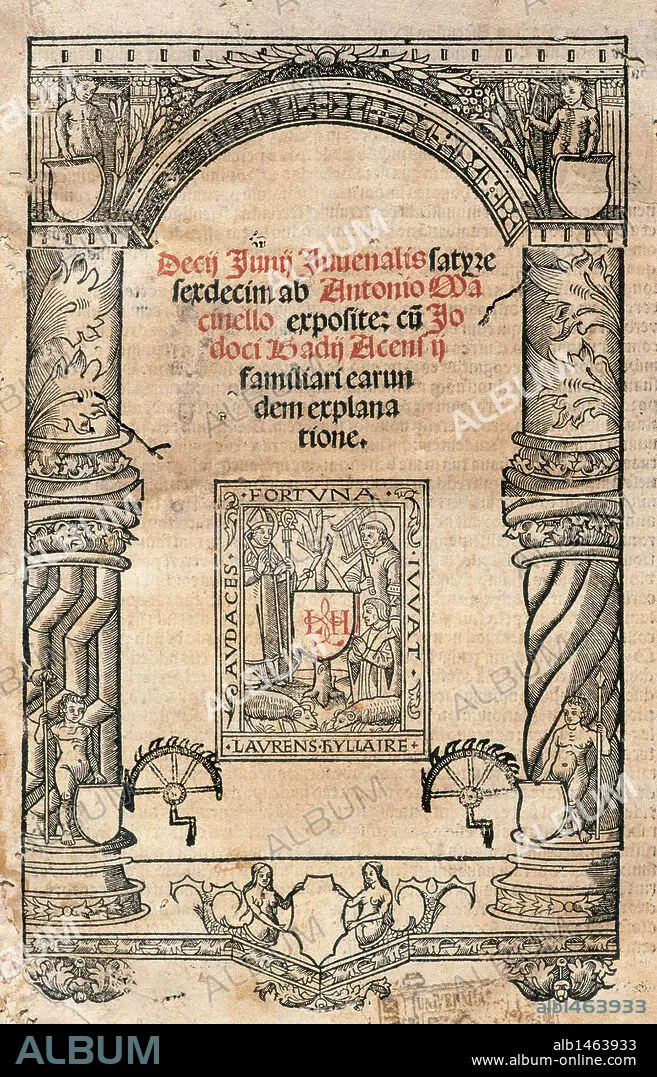 Decij Junij Juuenalis satyre
sexdecim ab Antonio Ma
cinello exposite: cũ Jo
doci Badij Acensij
familiari earun
dem explana
tione.
·FORTVNA·
AVDACES·
·IVVAT·
LH
·LAVRENS·HYLLAIRE·
UNIVERSITA
alb1463933
ALBUM
alb1463933
www.album-online.com